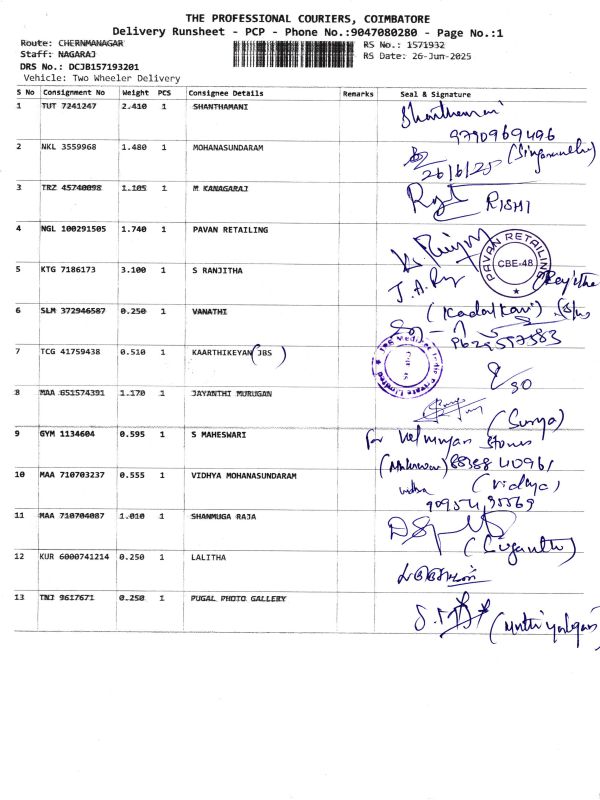 THE PROFESSIONAL COURIERS, COIMBATORE
Delivery Runsheet - PCP - Phone No.:9047080280 - Page No.:1
Route: CHERNMANAGAR
Staff: NAGARAJ
DRS No.: DCJB157193201
Vehicle: Two Wheeler Delivery
RS No.: 1571932
RS Date: 26-Jun-2025
S No Consignment No Weight PCS Consignee Details Remarks Seal & Signature
1 TUT 7241247 2.410 1 SHANTHAMANI Shanthamani
9790969496
2 NKL 3559968 1.480 1 MOHANASUNDARAM
26/6/25
3 TRZ 45740098 1.105 1 M KANAGARAJ RISHI
4 NGL 100291505 1.740 1 PAVAN RETAILING
PAVAN RETAILING CBE-48
5 KTG 7186173 3.100 1 S RANJITHA
6 SLM 372946587 0.250 1 VANATHI
7 TCG 41759438 0.510 1 KAARTHIKEYAN (JBS)
8/30
8 MAA 651574391 1.170 1 JAYANTHI MURUGAN
(Surya)
9 GYM 1134604 0.595 1 S MAHESWARI for Velmurugan Stones
10 MAA 710703237 0.555 1 VIDHYA MOHANASUNDARAM (Vidhya)
11 MAA 710704087 1.010 1 SHANMUGA RAJA
(Suganthi)
12 KUR 6000741214 0.250 1 LALITHA
13 TNJ 9617671 0.250 1 PUGAL PHOTO GALLERY